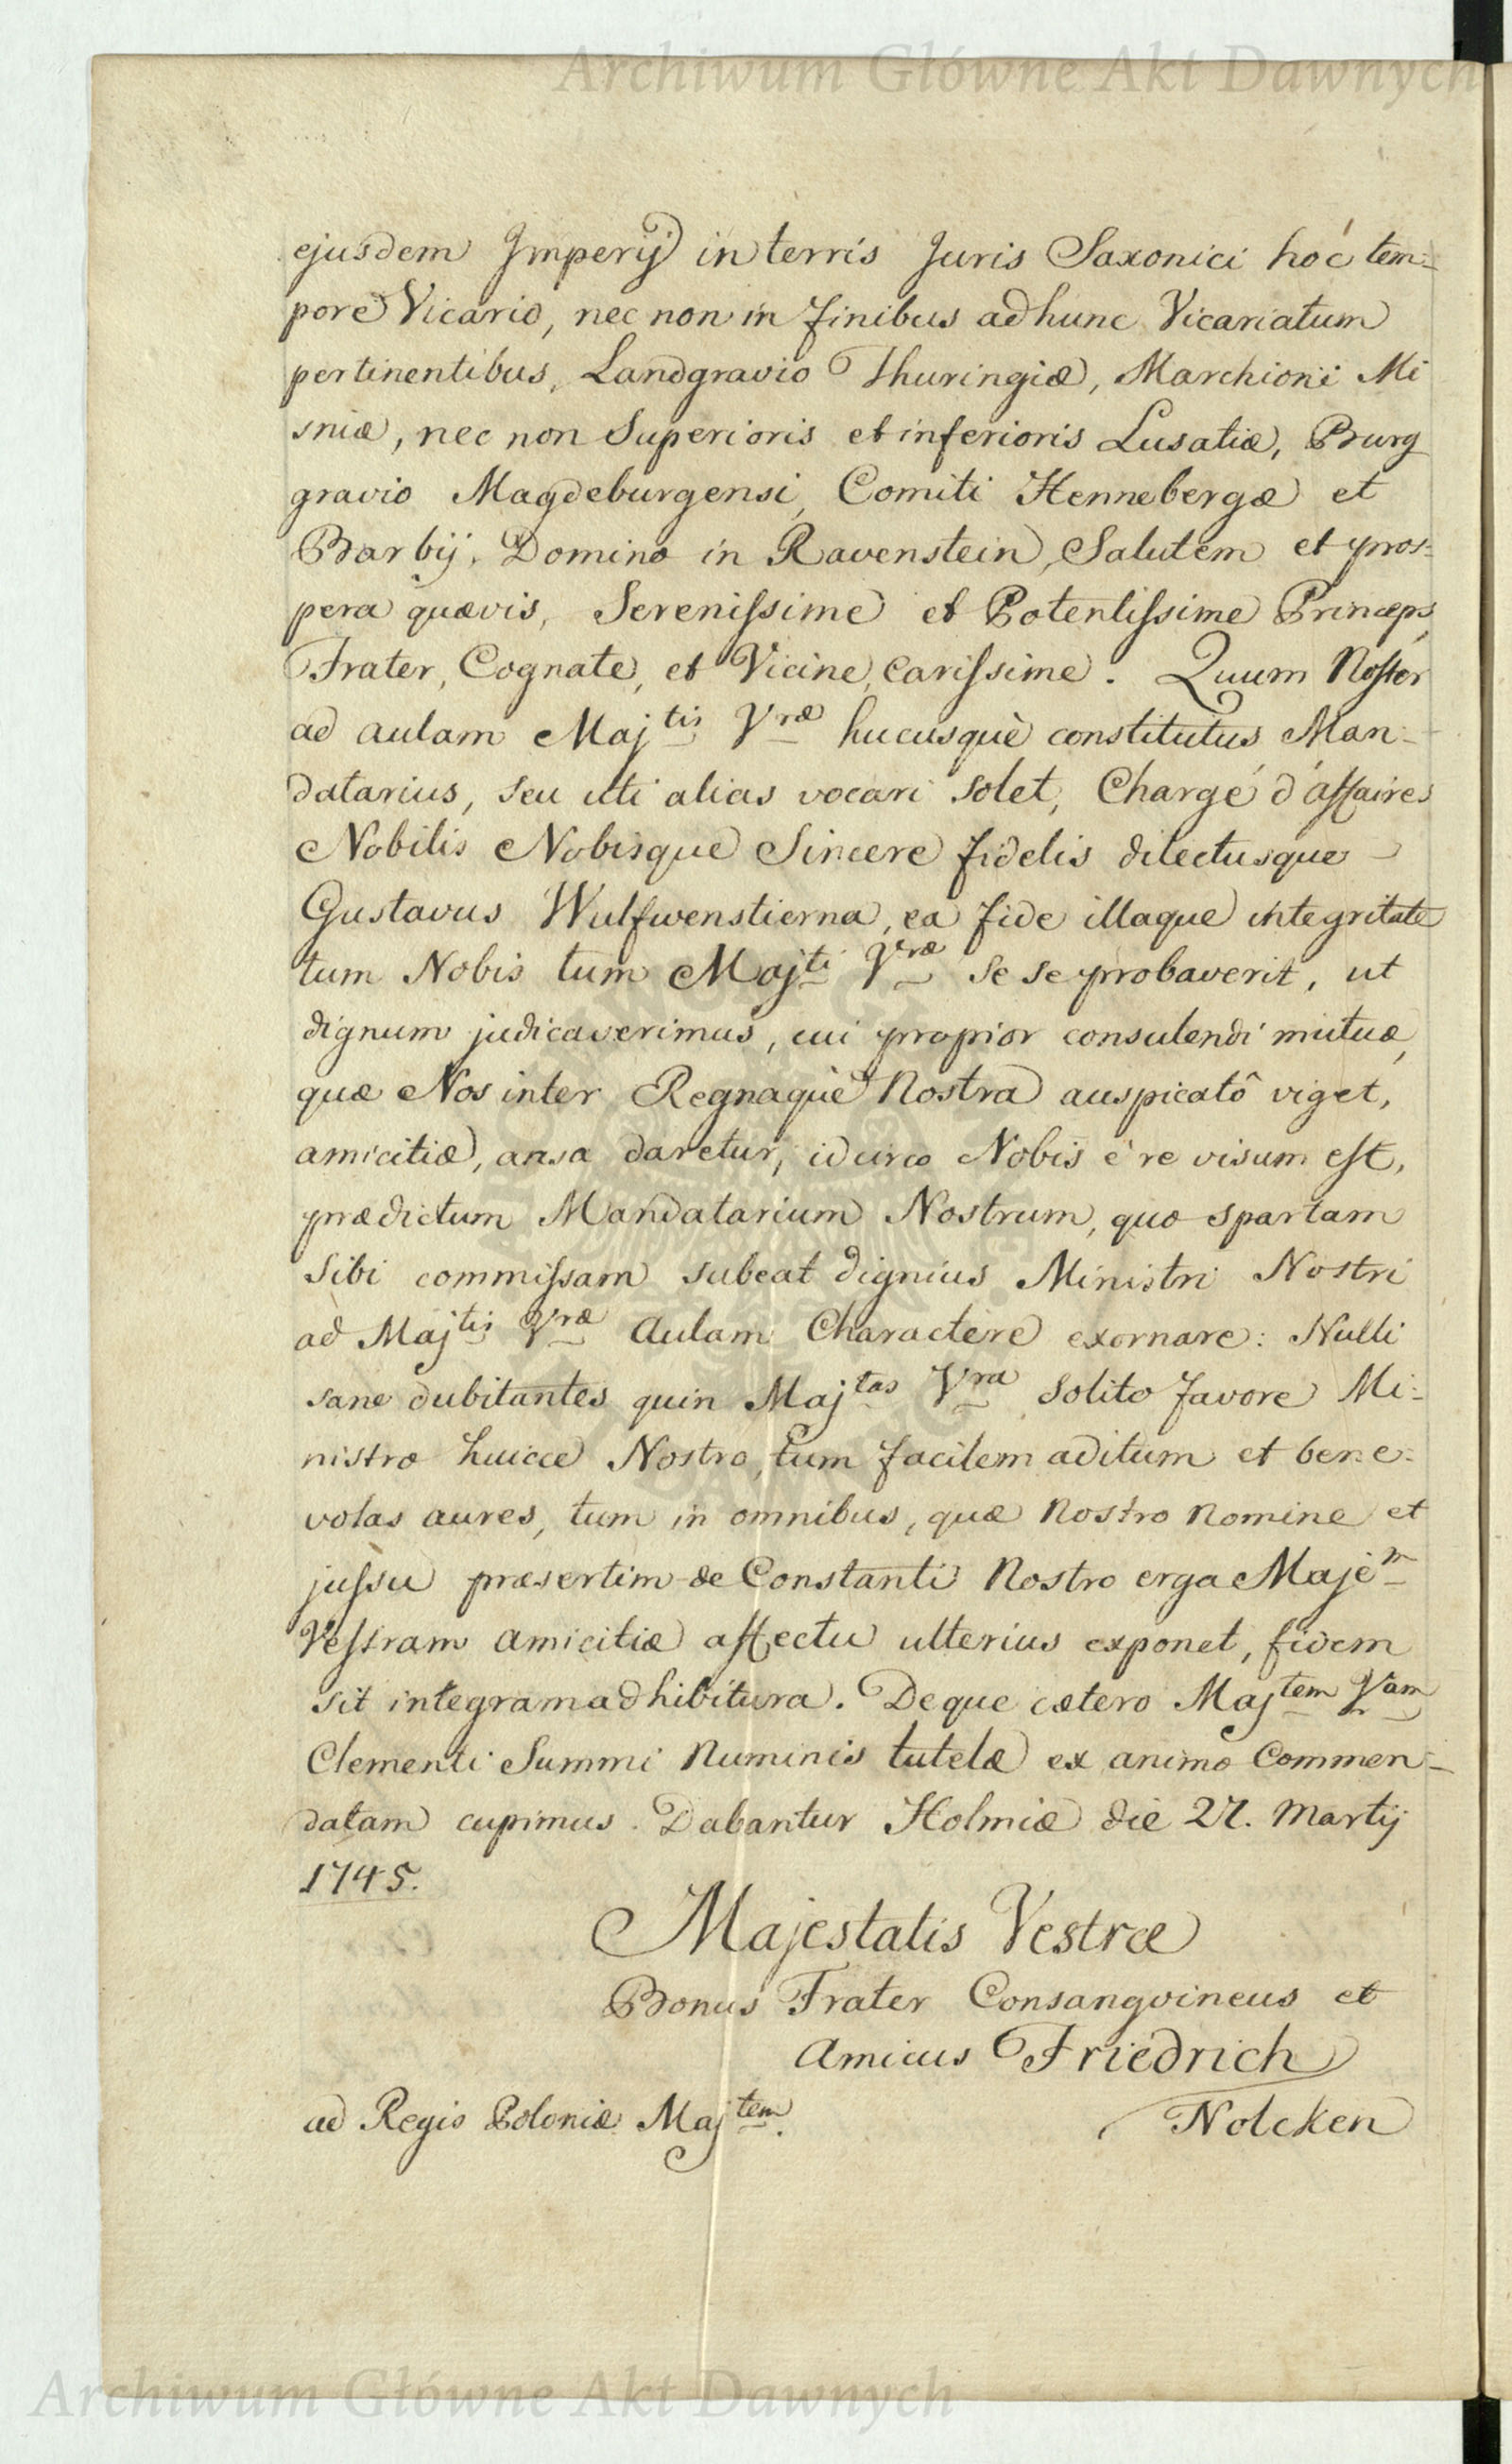 Archiwum Główne Akt Dawnych
ejusdem Imperij in terris Juris Saxonici hoc tem=
pore Vicario, nec non in finibus ad hunc Vicariatum
pertinentibus, Landgravio Thuringiæ, Marchioni Mi
sniæ, nec non Superioris et inferioris Lusatiæ, Burg
gravio Magdeburgensi, Comiti Hennebergæ et
Barbij, Domino in Ravenstein, Salutem et pros=
pera quævis, Serenissime et Potentissime Princeps,
Frater, Cognate, et Vicine, carissime. Quum Noster
ad aulam Majtis Vræ hucusquè constitutus Man-
datarius, seu uti alias vocari solet, Chargé d'affaires
Nobilis Nobisque Sincere fidelis dilectusque
Gustavus Wulfwenstierna, ea fide illaque integritate
tum Nobis tum Majti Vræ se se probaverit, ut
dignum judicaverimus, cui propior consulendi mutuæ,
quæ Nos inter Regnaquè Nostra auspicatô viget,
amicitiæ, ansa daretur, idcirco Nobis é re visum est,
prædictum Mandatarium Nostrum, quo spartam
sibi commissam subeat dignius Ministri Nostri
ad Majtis Vræ Aulam Charactere exornare: Nulli
sane dubitantes quin Majtas Vra solito favore Mi-
nistro huicce Nostro, tum facilem aditum et bene-
volas aures, tum in omnibus, quæ Nostro Nomine et
jussu præsertim de Constanti Nostro erga Majem
Vestram amicitiæ affectu ulterius exponet, fidem
sit integram adhibitura. De que cætero Majtem Vam
Clementi Summi Numinis tutelæ ex animo Commen-
datam cupimus. Dabantur Holmiæ die 27. Martij
1745.
Majestatis Vestræ
Bonus Frater Consangvineus et
Amicus Friedrich
ad Regis Poloniæ Majtem.
Nolcken
Archiwum Główne Akt Dawnych